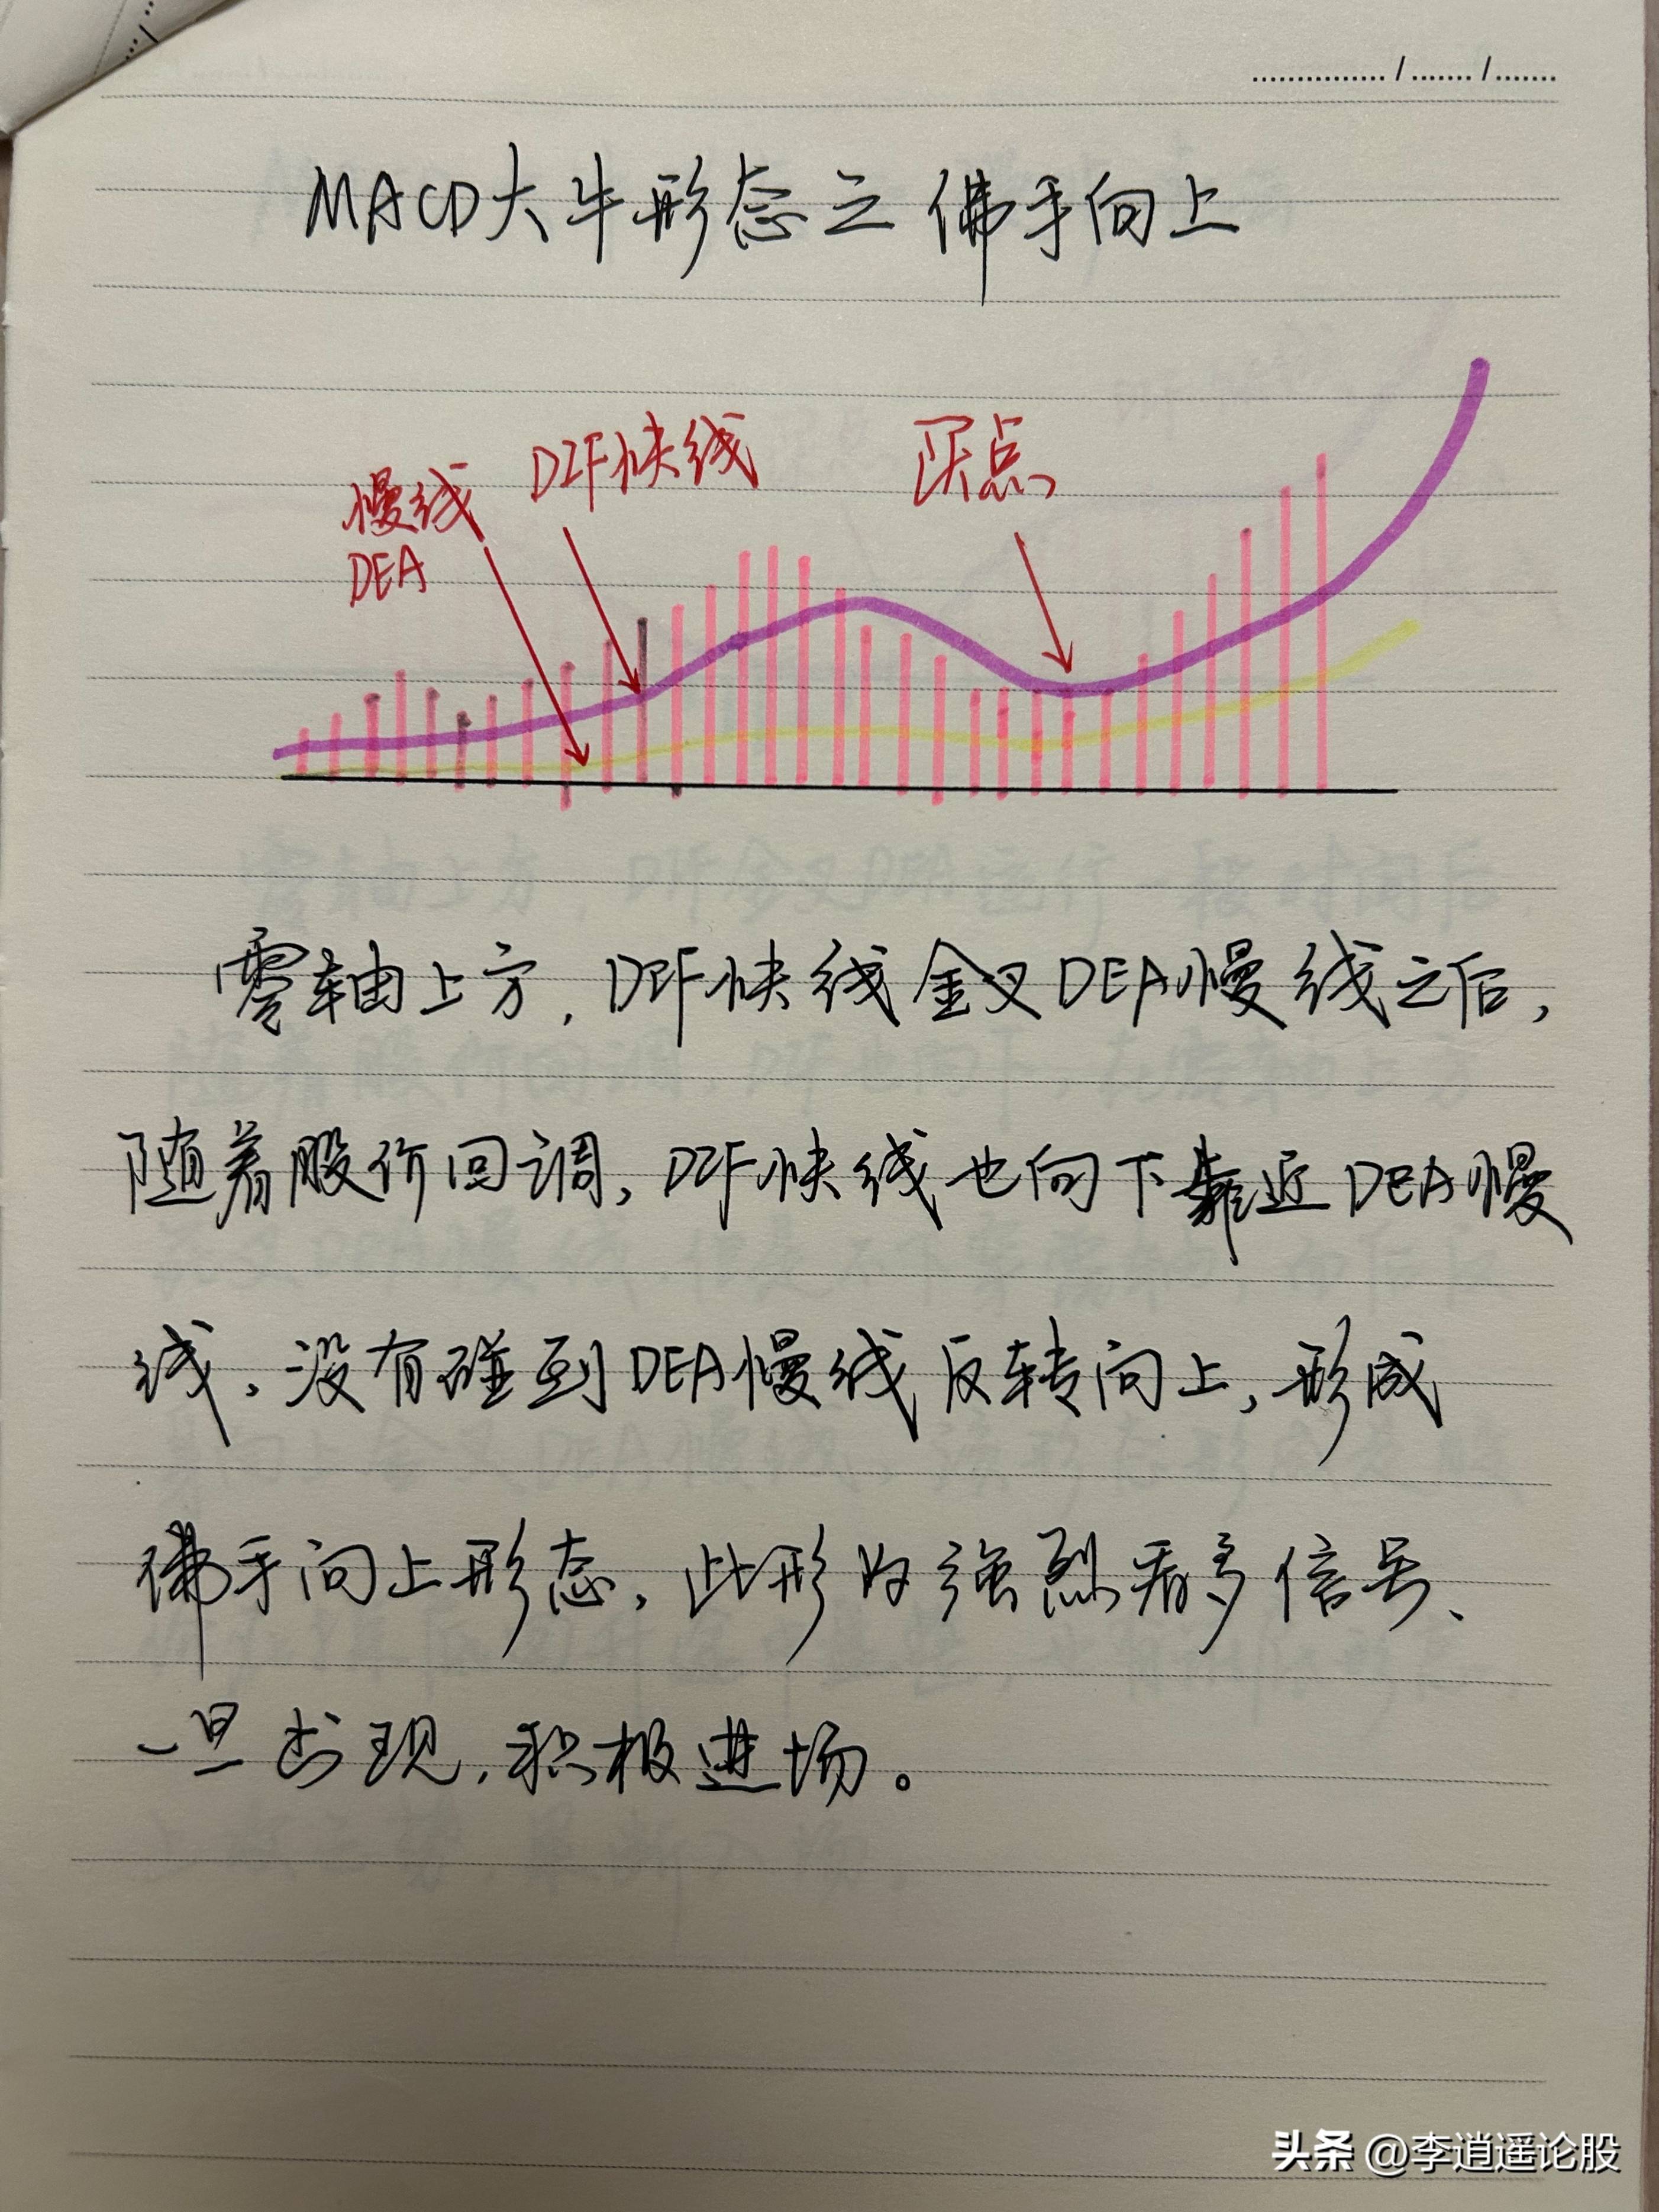 ............... / ....... / .......
MACD大牛形态之佛手向上
DIF快线
买点
慢线
DEA
零轴上方，DIF快线金叉DEA慢线之后，
随着股价回调，DIF快线也向下靠近DEA慢
线，没有碰到DEA慢线反转向上，形成
佛手向上形态，此形为强烈看多信号、
一旦出现，积极进场。
头条 @李逍遥论股